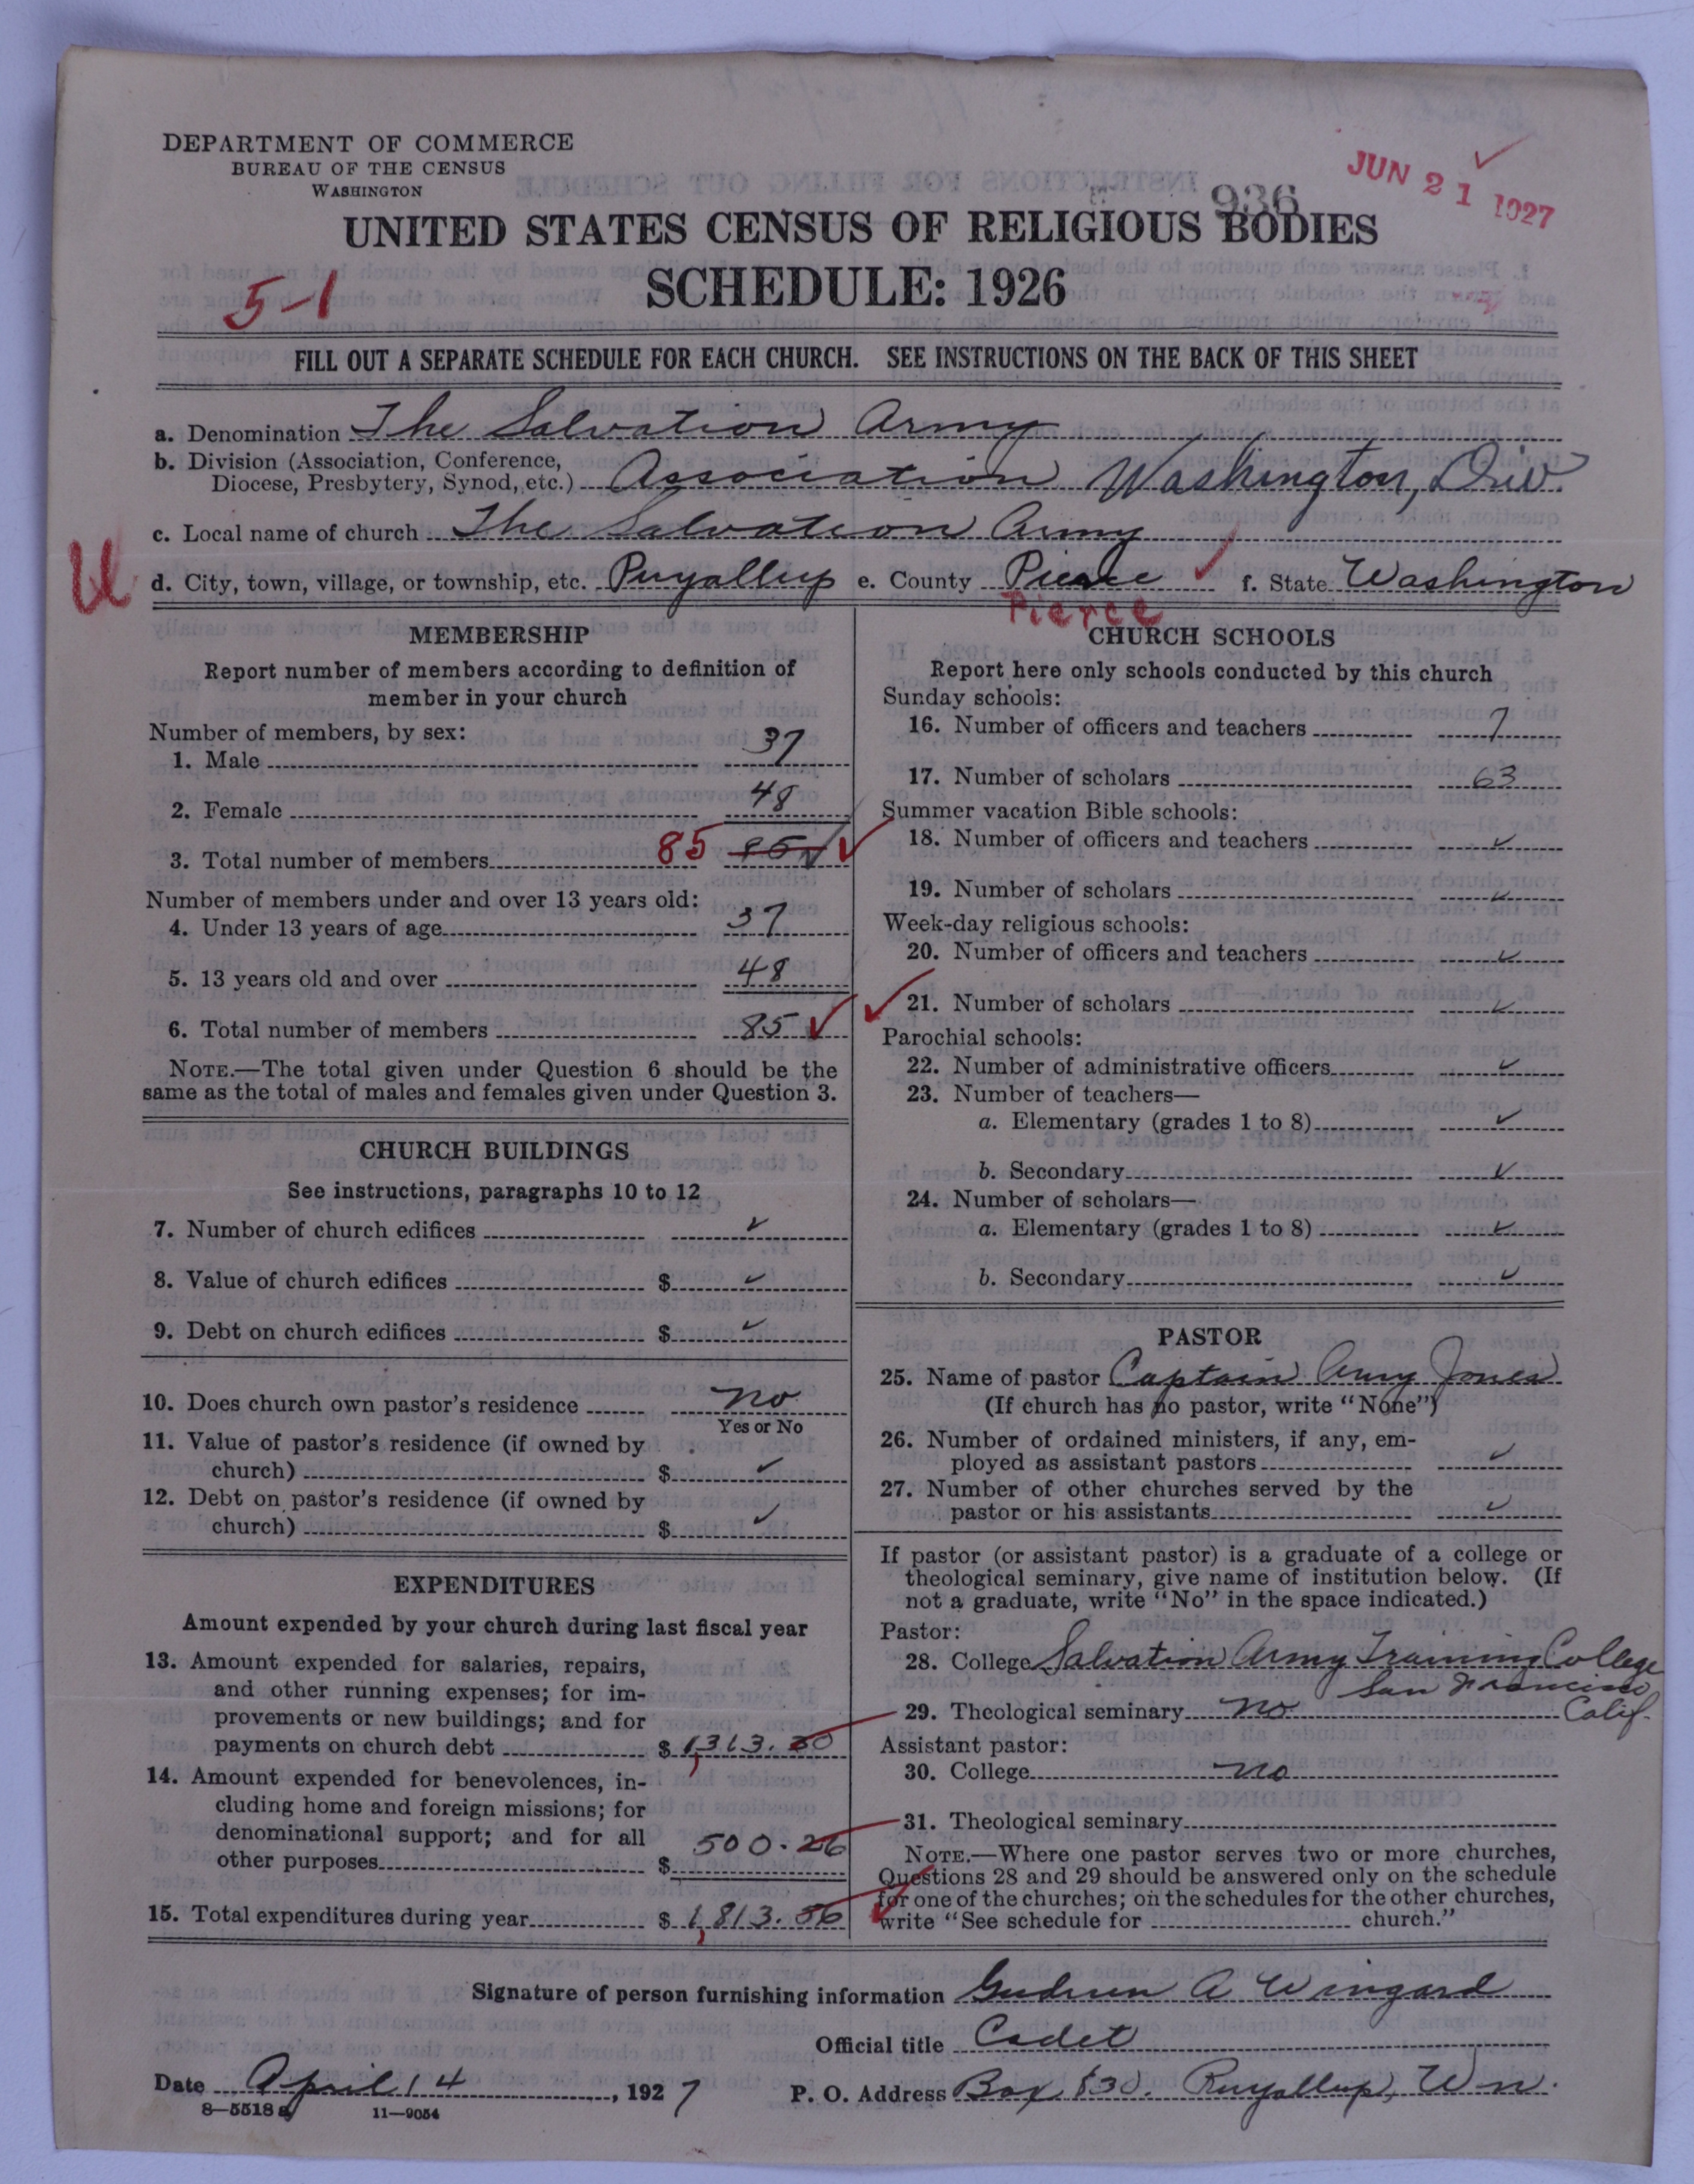 DEPARTMENT OF COMMERCE
BUREAU OF THE CENSUS
WASHINGTON
936
JUN 21 1927
UNITED STATES CENSUS OF RELIGIOUS BODIES
SCHEDULE: 1926
5-1
FILL OUT A SEPARATE SCHEDULE FOR EACH CHURCH. SEE INSTRUCTIONS ON THE BACK OF THIS SHEET
a. Denomination The Salvation Army
b. Division (Association, Conference, Diocese, Presbytery, Synod, etc.) Association Washington, Div.
c. Local name of church The Salvation Army
U
d. City, town, village, or township, etc. Puyallup e. County Pierce ✓ f. State Washington
Pierce
MEMBERSHIP
Report number of members according to definition of
member in your church
Number of members, by sex:
1. Male 37
2. Female 48
3. Total number of members 85 85 ✓
Number of members under and over 13 years old:
4. Under 13 years of age 37
5. 13 years old and over 48
6. Total number of members 85 ✓
NOTE.—The total given under Question 6 should be the
same as the total of males and females given under Question 3.
CHURCH BUILDINGS
See instructions, paragraphs 10 to 12
7. Number of church edifices ✓
8. Value of church edifices $ ✓
9. Debt on church edifices $ ✓
10. Does church own pastor's residence no
Yes or No
11. Value of pastor's residence (if owned by
church) $ ✓
12. Debt on pastor's residence (if owned by
church) $ ✓
EXPENDITURES
Amount expended by your church during last fiscal year
13. Amount expended for salaries, repairs,
and other running expenses; for im-
provements or new buildings; and for
payments on church debt $ 1,313.30
14. Amount expended for benevolences, in-
cluding home and foreign missions; for
denominational support; and for all
other purposes $ 500.26
15. Total expenditures during year $ 1,813.56
CHURCH SCHOOLS
Report here only schools conducted by this church
Sunday schools:
16. Number of officers and teachers 7
17. Number of scholars 63
Summer vacation Bible schools:
18. Number of officers and teachers ✓
19. Number of scholars ✓
Week-day religious schools:
20. Number of officers and teachers ✓
21. Number of scholars ✓
Parochial schools:
22. Number of administrative officers ✓
23. Number of teachers—
a. Elementary (grades 1 to 8) ✓
b. Secondary ✓
24. Number of scholars—
a. Elementary (grades 1 to 8) ✓
b. Secondary ✓
PASTOR
25. Name of pastor Captain Amy Jones
(If church has no pastor, write "None")
26. Number of ordained ministers, if any, em-
ployed as assistant pastors ✓
27. Number of other churches served by the
pastor or his assistants ✓
If pastor (or assistant pastor) is a graduate of a college or
theological seminary, give name of institution below. (If
not a graduate, write "No" in the space indicated.)
Pastor:
28. College Salvation Army Training College
San Francisco
29. Theological seminary no Calif.
Assistant pastor:
30. College no
31. Theological seminary
NOTE.—Where one pastor serves two or more churches,
Questions 28 and 29 should be answered only on the schedule
for one of the churches; on the schedules for the other churches,
write "See schedule for church."
Signature of person furnishing information Gudrun A Wingard
Official title Cadet
Date April 14, 1927 P. O. Address Box 830. Puyallup, Wn.
8-5518 a 11-9054